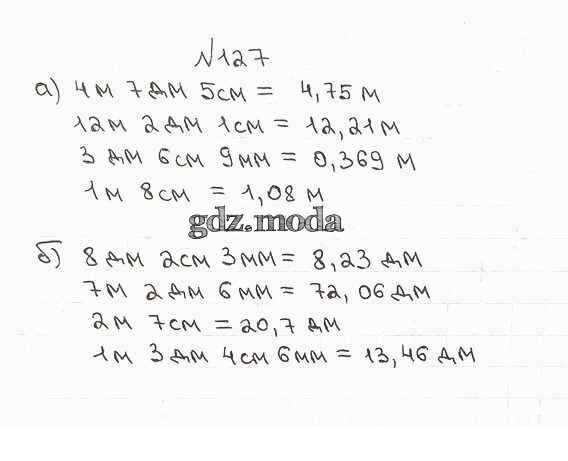 №127
а) 4м 7дм 5см = 4,75 м
12м 2 дм 1см = 12,21м
3 дм 6см 9мм = 0,369 м
1м 8см = 1,08 м
gdz.moda
б) 8 дм 2см 3мм = 8,23 дм
7м 2 дм 6мм = 72,06 дм
2м 7см = 20,7 дм
1м 3 дм 4см 6мм = 13,46 дм